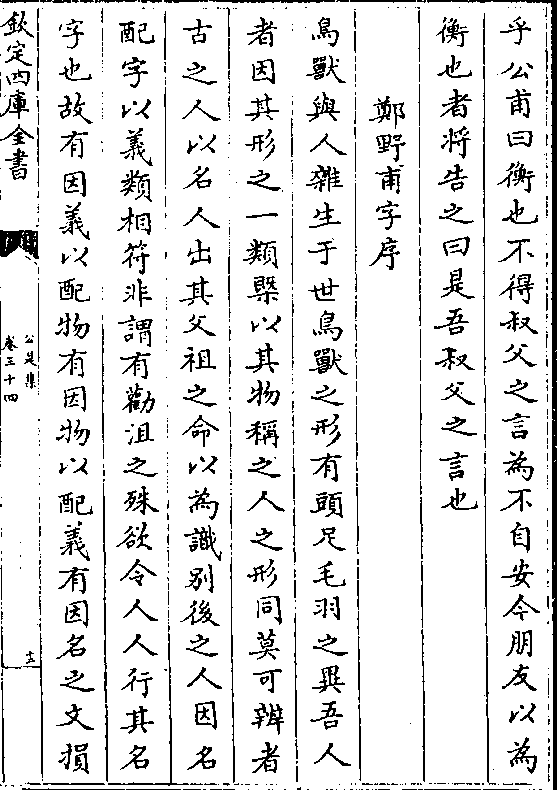 乎公甫曰衡也不得叔父之言為不自安今朋友以為
衡也者将告之曰是吾叔父之言也
鄭野甫字序
鳥獸與人雜生于世鳥獸之形有頭足毛羽之異吾人
者因其形之一類槩以其物稱之人之形同莫可辨者
古之人以名人出其父祖之命以為識别後之人因名
配字以義類相符非謂有勸沮之殊欲令人人行其名
字也故有因義以配物有因物以配義有因名之文損
欽定四庫全書
公是集
卷三十四
十三